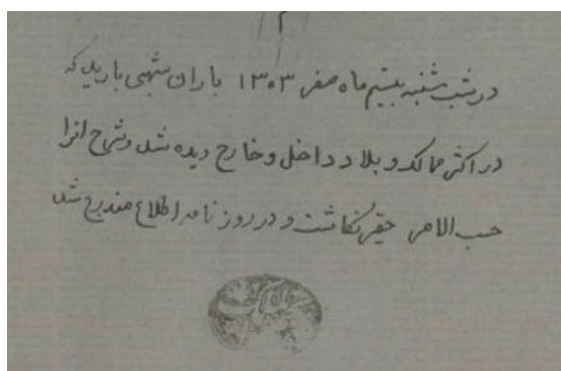 ۲
در شب شنبه بیستم ماه صفر ۱۳۰۳ باران شهبی بارید که
در اکثر ممالک و بلاد داخل و خارج دیده شد و شرح انرا
حسب الامر حقیر نگاشت و در روزنامه اطلاع مندرج شد